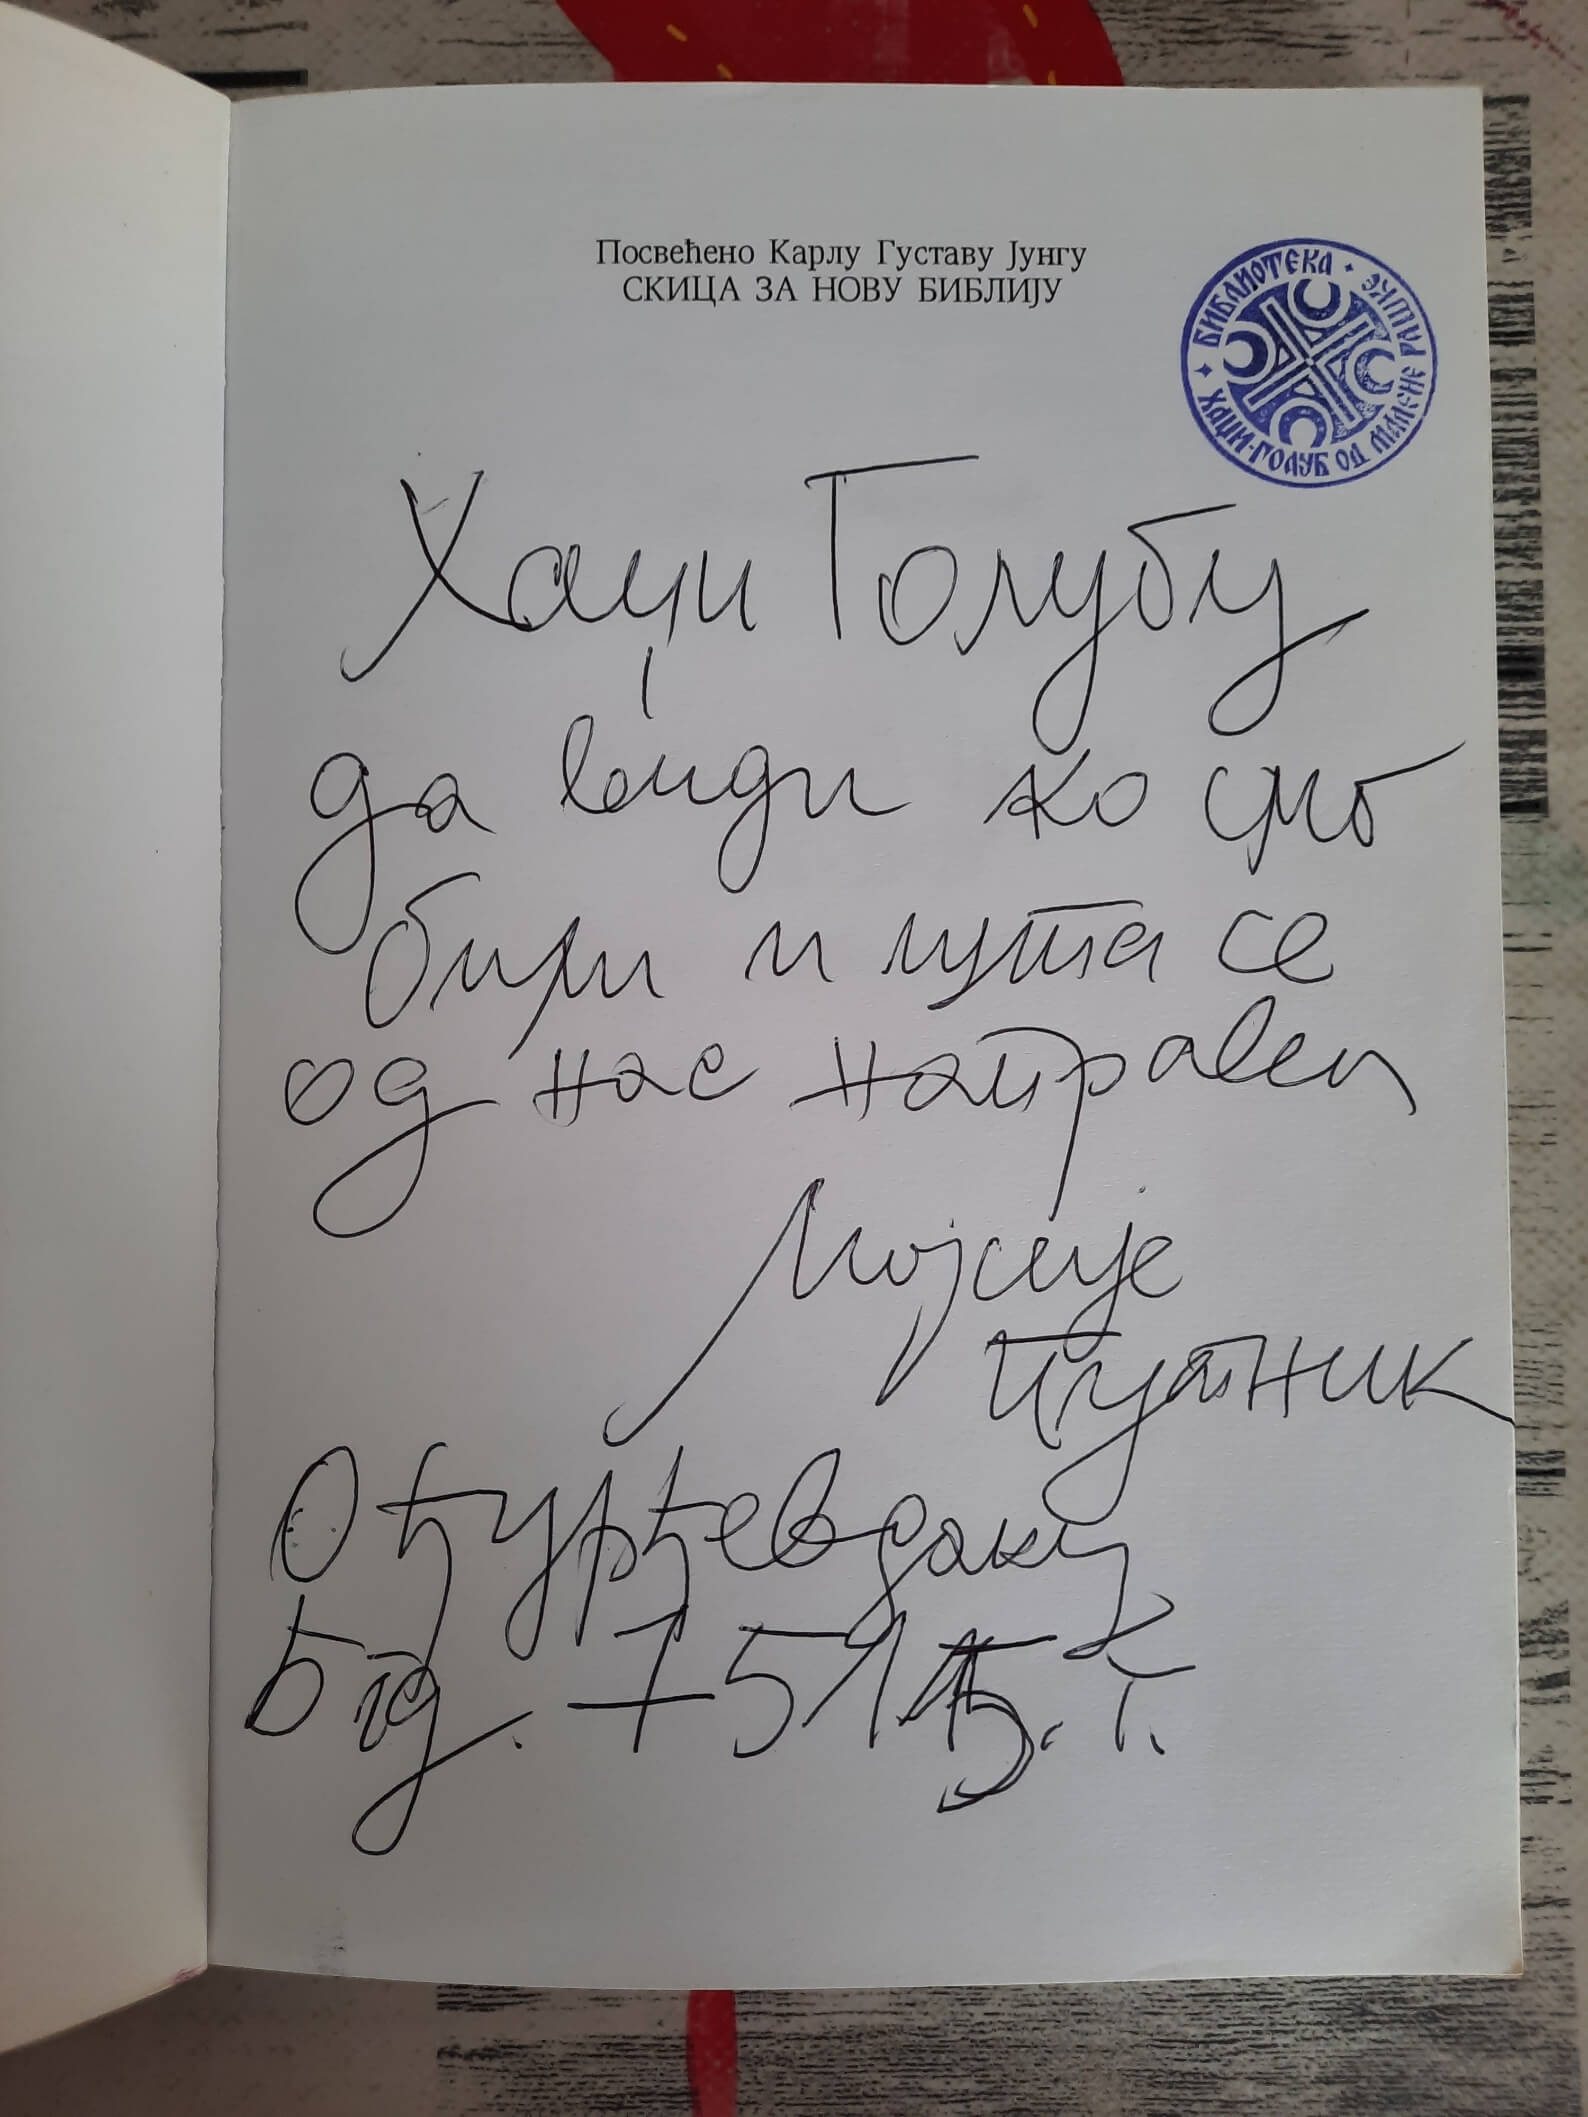 Посвећено Карлу Густаву Јунгу
СКИЦА ЗА НОВУ БИБЛИЈУ
БИБЛИОТЕКА
ХАЏИ-ГОЛУБ ОД МАЛЕНЕ РАШКЕ
Хаџи Голубу
да види ко смо
били и шта се
од нас направи
Мојсије
Путник
О Ђурђевдаку
Бгд. 7515. г.